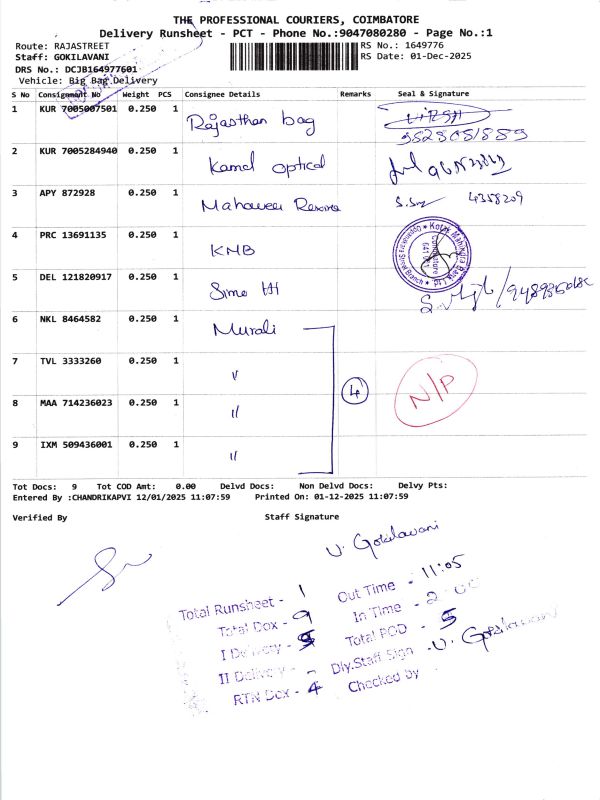 THE PROFESSIONAL COURIERS, COIMBATORE
Delivery Runsheet - PCT - Phone No.:9047080280 - Page No.:1
Route: RAJASTREET
RS No.: 1649776
Staff: GOKILAVANI
RS Date: 01-Dec-2025
DRS No.: DCJB164977601
Vehicle: Big Bag Delivery
S No Consignment No Weight PCS Consignee Details Remarks Seal & Signature
1 KUR 7005007501 0.250 1 Rajasthan bag
2 KUR 7005284940 0.250 1 Kamal optical
3 APY 872928 0.250 1 Mahaveer 4358209
4 PRC 13691135 0.250 1 KMB Kotak Mahindra Bank Ltd
5 DEL 121820917 0.250 1
6 NKL 8464582 0.250 1 Murali
7 TVL 3333260 0.250 1 "
8 MAA 714236023 0.250 1 " 4 N/P
9 IXM 509436001 0.250 1 "
Tot Docs: 9 Tot COD Amt: 0.00 Delvd Docs: Non Delvd Docs: Delvy Pts:
Entered By :CHANDRIKAPVI 12/01/2025 11:07:59 Printed On: 01-12-2025 11:07:59
Verified By Staff Signature
U. Gokilavani
Total Runsheet - 1 Out Time - 11:05
Total Dox - 9 In Time - 2
I Delivery - 5 Total POD - 5
II Delivery - - Dly.Staff Sign - U. Gokilavani
RTN Dox - 4 Checked by